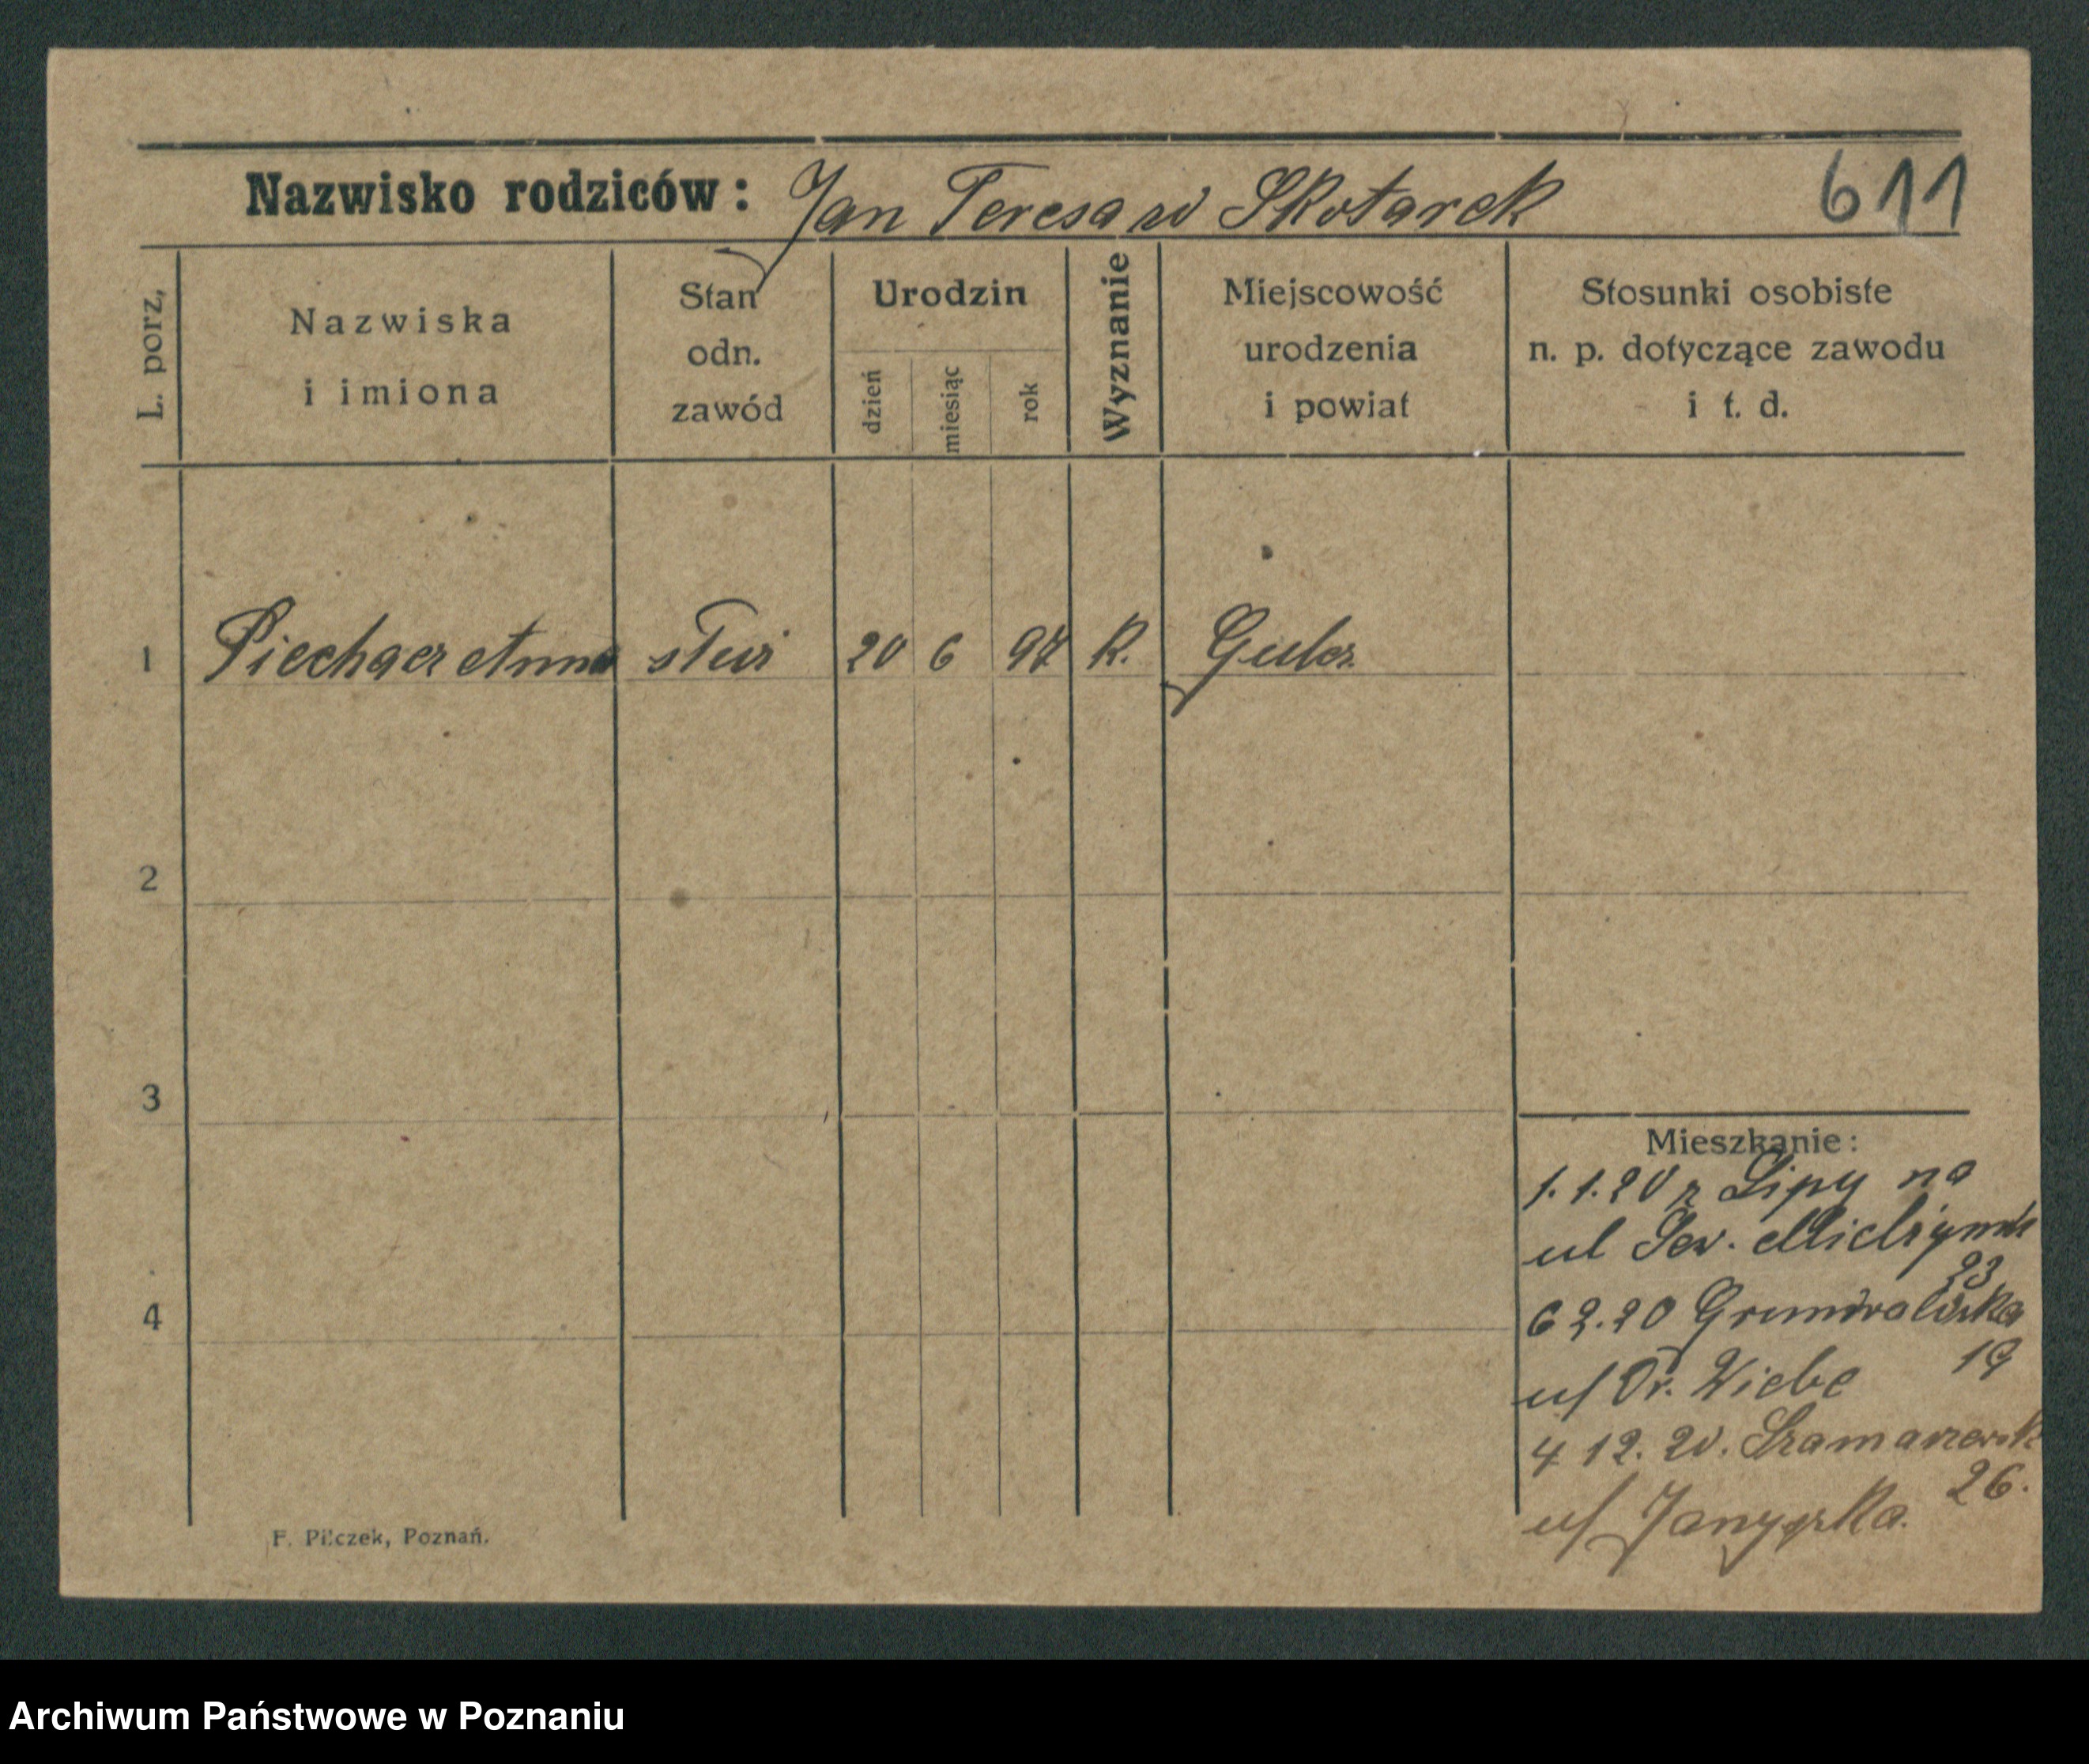 Nazwisko rodziców: Jan Teresa w Skotarek 611
L. porz,
Nazwiska
i imiona
Stan
odn.
zawód
Urodzin
dzień
miesiąc
rok
Wyznanie
Miejscowość
urodzenia
i powiat
Stosunki osobiste
n. p. dotyczące zawodu
i t. d.
1 Anna 20 6 97 K.
2
3
4
Mieszkanie:
1.1.20 z Lipy na
ul Sew. Mielżyńsk
23
6 2.20 Grunwaldska
19
u/ Dr. Wiebe
4 12. 20. Szamarzewsk
26.
u/
F. Pilczek, Poznań.
Archiwum Państwowe w Poznaniu